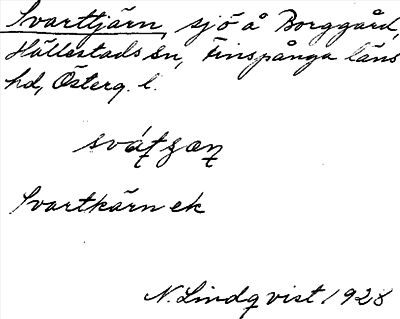 Svarttjärn, sjö å Borggård,
Hällestads sn, Finspånga läns
hd, Österg. l.
Svartkärn ek
N. Lindqvist 1928